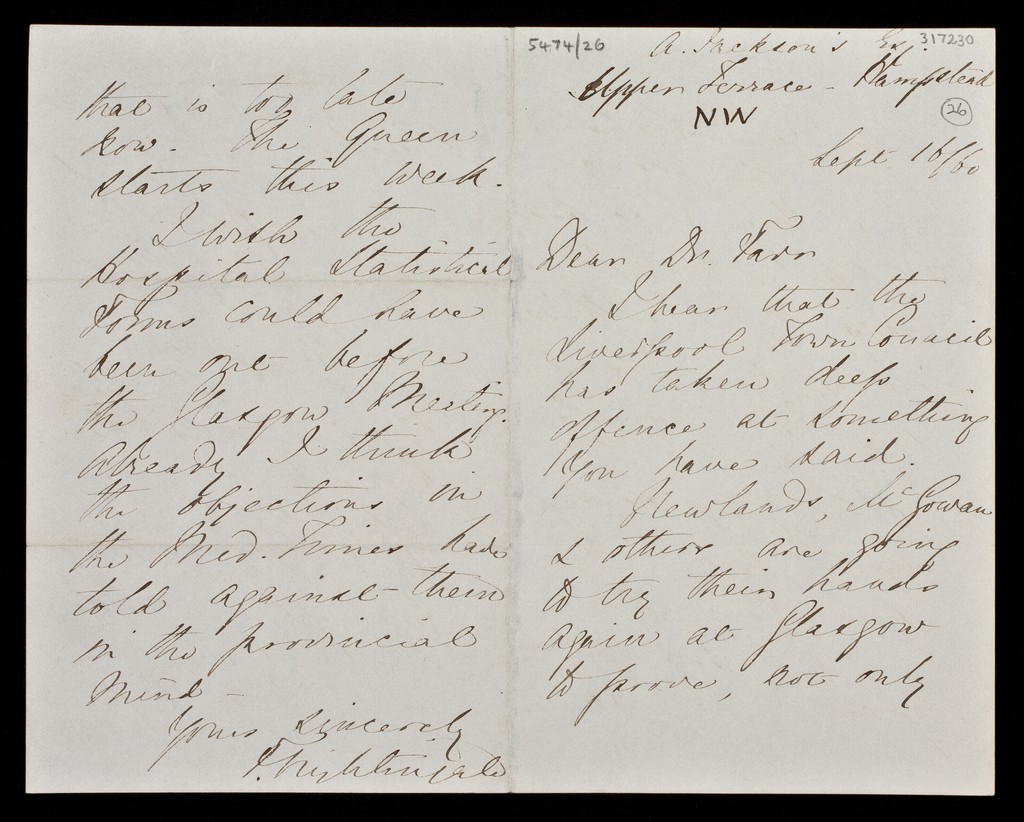 5474/26
317230
A. Jackson's Esq.
Upper Terrace - Hampstead
NW
26
Sept 18/60
Dear Dr. Farr
I hear that the
Liverpool Town Council
has taken deep
offence at something
you have said.
Newlands, McGowan
& others are going
to try their hands
again at Glasgow
to prove, not only
that is too late
now. The Queen
starts this week.
I wish the
Hospital Statistical
Forms could have
been out before
the Glasgow Meeting.
Already I think
the objections in
the Med. Times have
told against them
in the provincial
mind -
Yours sincerely
F. Nightingale